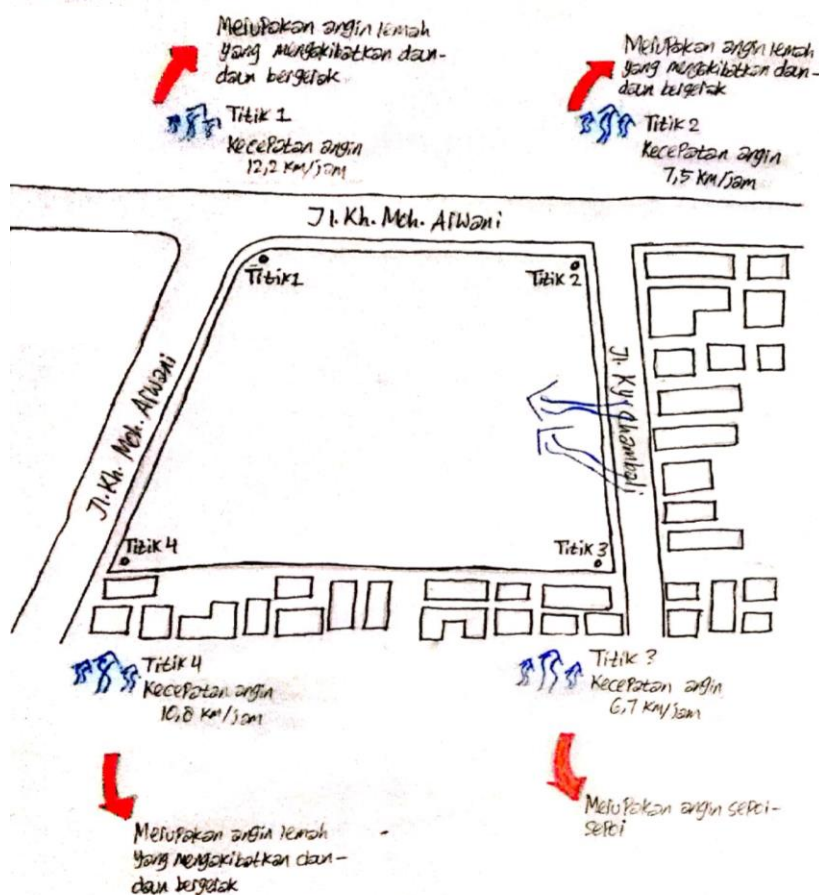 Merupakan angin lemah
yang mengakibatkan daun-
daun bergerak
Titik 1
Kecepatan angin
12,2 Km/jam
Merupakan angin lemah
yang mengakibatkan daun-
daun bergerak
Titik 2
Kecepatan angin
7,5 Km/jam
Jl. Kh. Moh. Arwani
Titik 1
Titik 2
Jl. Kh. Moh. Arwani
Jl. Ky
Titik 4
Titik 3
Titik 4
Kecepatan angin
10,8 Km/jam
Titik 3
Kecepatan angin
6,7 Km/jam
Merupakan angin lemah
yang mengakibatkan daun-
daun bergerak
Merupakan angin sepoi-
sepoi